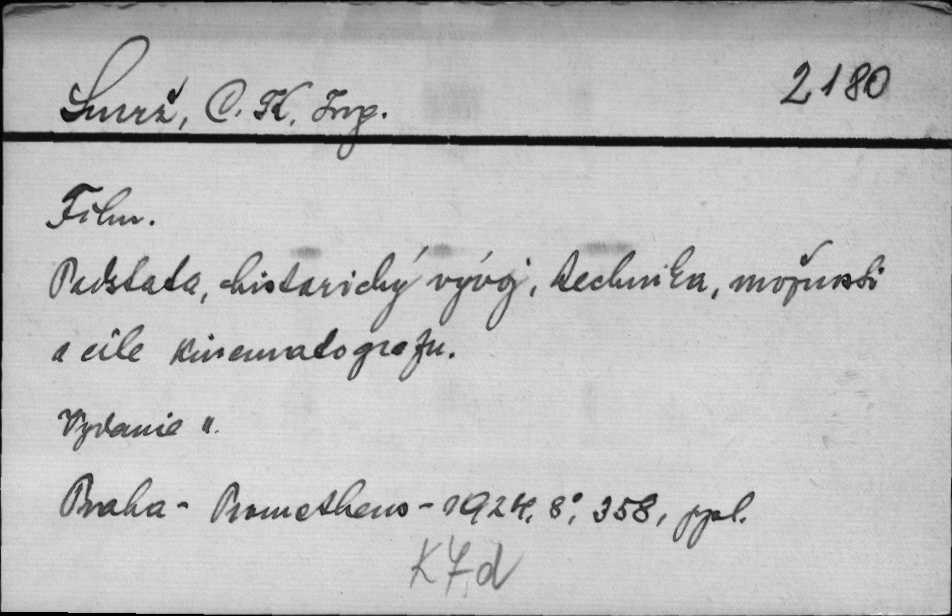 Smrž, C. K. Ing.
2180
Film.
Podstata, historický vývoj, technika, možnosti
a cíle kinematografu.
Vydanie
Praha - Prometheus - 1924, 8°, 358,
K7d